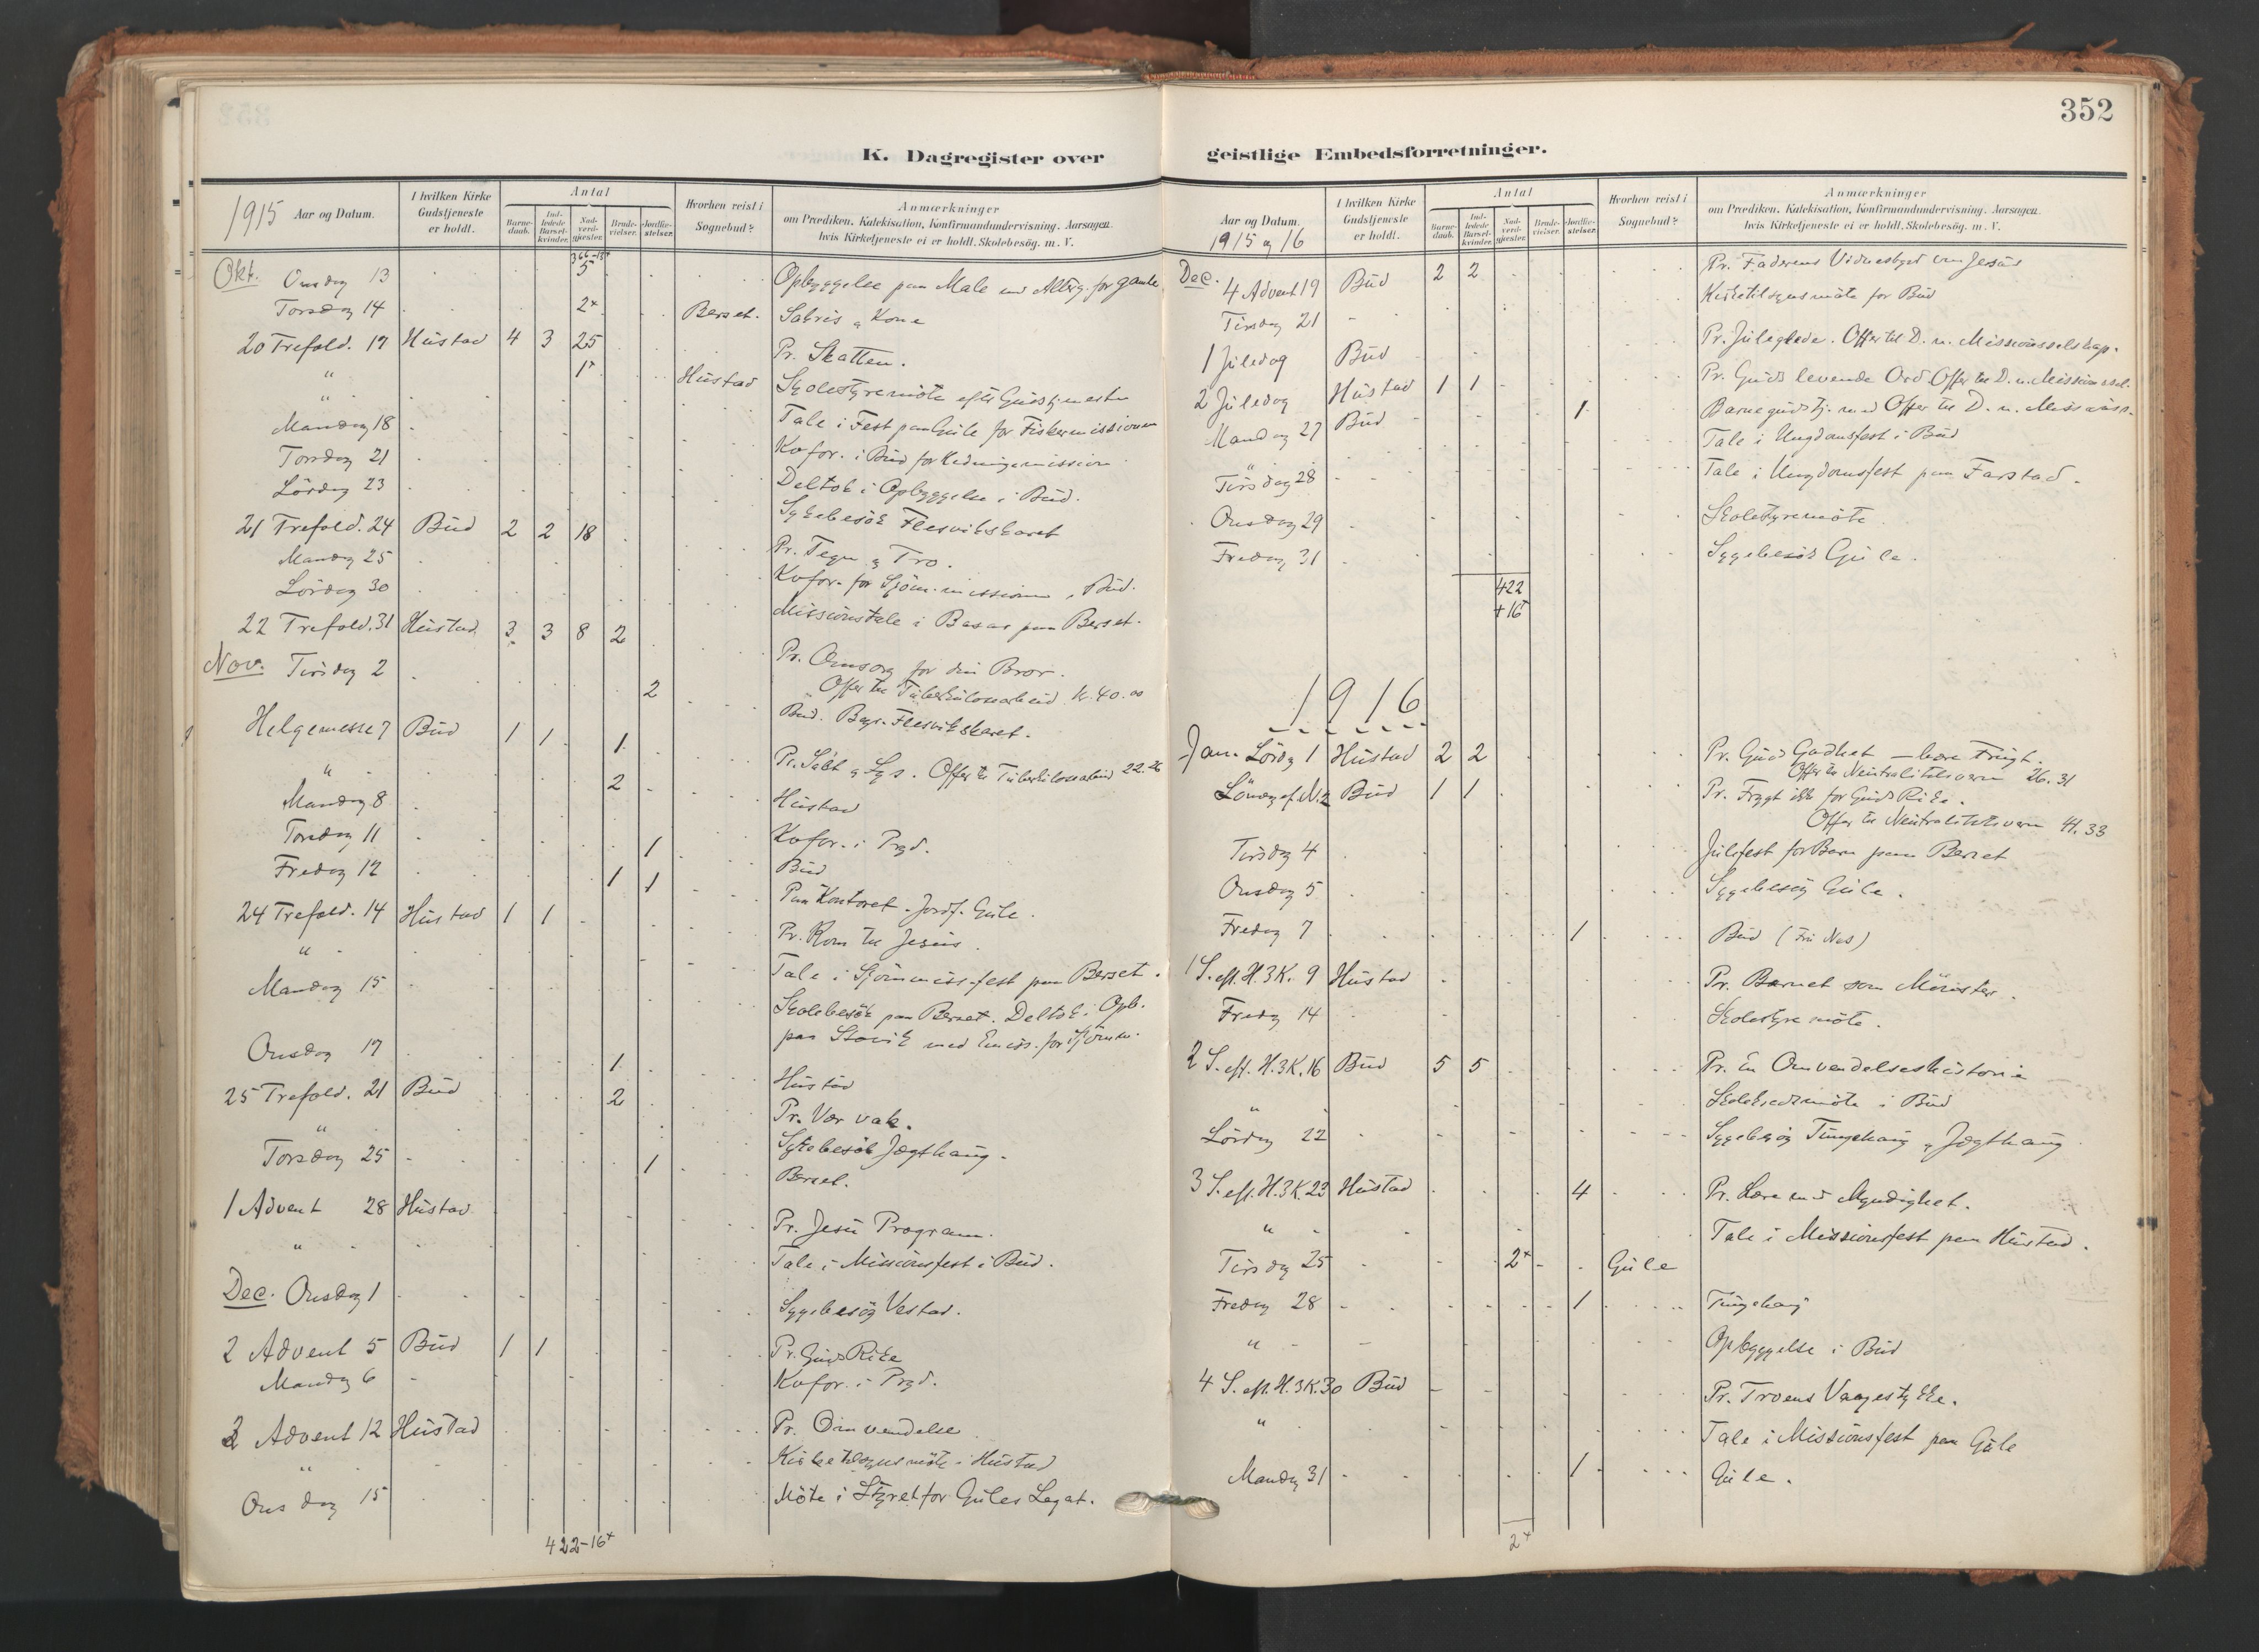 352
K. Dagregister over
geistlige Embedsforretninger.
1915 Aar og Datum.
I hvilken Kirke Gudstjeneste er holdt.
Antal
Barnedaab.
Indledede Barselkvinder.
Nadverdgjester.
Brudevielser.
Jordfæstelser.
Hvorhen reist i Sognebud?
Anmærkninger
om Prædiken. Katekisation, Konfirmandundervisning. Aarsagen.
hvis Kirketjeneste ei er holdt. Skolebesög. m. V.
Okt. Onsdag 13 5 Opbyggelse paa Male
Torsdag 14 2+ Berset. Kone
20 Trefold. 17 Hustad 4 3 25 Pr. Skatten.
" 1+ Hustad Skolestyremöte efter Gudstjenesten
" Tale i Fest paa Gule for Fiskermissionen
Mandag 18 Kvfor. i Bud for Hedningemission
Torsdag 21 Deltok i Opbyggelse i Bud.
Lördag 23 Sykebesök Flesvikskaret
21 Trefold. 24 Bud 2 2 18 Pr. Tegn og Tro.
Mandag 25 Kvfor. for Sjöm.missionen, Bud.
Lördag 30 Missionstale i Basar paa Berset.
22 Trefold. 31 Hustad 3 3 8 2 Pr. Omsorg for din Bror.
Offer til Tuberkulosearbeid Kr. 40.00
Nov. Tirsdag 2 2 Bud. Flesvikskaret.
Helgemesse 7 Bud 1 1 1 Pr. Salt og Lys. Offer til Tuberkulosearbeid 22.26
" 2 Hustad
Mandag 8 Kvfor. i Prgd.
Torsdag 11 1 Bud
Fredag 12 1 1 Paa Kontoret. Jordf. Gule.
24 Trefold. 14 Hustad 1 1 Pr. Kom til Jesus.
" Tale i Sjömmiss.fest paa Berset.
Mandag 15 Skolebesök paa Berset. Deltok i Opb.
paa Stavik med Emiss. for Sjömm.
Onsdag 17 1 Hustad
25 Trefold. 21 Bud 2 Pr. Vær vak.
" Sykebesök Jægthaug.
Torsdag 25 1 Berset.
1 Advent 28 Hustad Pr. Jesu Program.
" Tale i Missionsfest i Bud.
Dec. Onsdag 1 Sygebesög Vestad.
2 Advent 5 Bud 1 1 Pr. Guds Rike
Mandag 6 Kvfor. i Prgd.
3 Advent 12 Hustad Pr. Omvendelse
" Kirketilsynsmöte i Hustad
Onsdag 15 Möte i Styret for Gules Legat.
422-16+
Aar og Datum.
1915 og 16
I hvilken Kirke Gudstjeneste er holdt.
Antal
Barnedaab.
Indledede Barselkvinder.
Nadverdgjester.
Brudevielser.
Jordfæstelser.
Hvorhen reist i Sognebud?
Anmærkninger
om Prædiken. Katekisation, Konfirmandundervisning. Aarsagen.
hvis Kirketjeneste ei er holdt. Skolebesög. m. V.
Dec. 4 Advent 19 Bud 2 2 Pr. Faderens Vidnesbyrd om Jesus
Tirsdag 21 Kirketilsynsmöte for Bud
1 Juledag Bud Pr. Juleglede. Offer til D. n. Missionsselskap.
2 Juledag Hustad 1 1 Pr. Guds levende Ord. Offer til D. n. Missionssel.
Mandag 27 Bud 1 Barnegudstj. med Offer til D. n. Missionss.
" Tale i Ungdomsfest i Bud
Tirsdag 28 Tale i Ungdomsfest paa Farstad.
Onsdag 29 Skolestyremöte
Fredag 31 Sygebesök Gule.
422
+16+
1916
Jan. Lördag 1 Hustad 2 2 Pr. Guds Godhet
Offer til Neutralitetsvern 26.31
Söndag ef. N. 2 Bud 1 1 Pr. Frygt ikke for Guds Rike.
Offer til Neutralitetsvern 41.33
Tirsdag 4 Julefest for Barn paa Berset
Onsdag 5 Sygebesög Gule.
Fredag 7 1 Bud (Fru Nes)
1 S. eft. H.3K. 9 Hustad Pr. Barnet som Mönster.
Fredag 14 Skolestyremöte.
2 S. eft. H.3K. 16 Bud 5 5 Pr. En Omvendelseshistorie
" Skolekredsmöte i Bud
Lördag 22 Sygebesög Tungehaug og Jægthaug.
3 S. eft. H.3K. 23 Hustad 4 Pr. Lære med Myndighet.
" Tale i Missionsfest paa Hustad.
Tirsdag 25 2+ Gule
Fredag 28 1 Tungehaug
" Opbyggelse i Bud
4 S. eft. H.3K. 30 Bud Pr. Troens Vaagestykke.
" Tale i Missionsfest paa Gule
Mandag 31 1 Gule.
2+